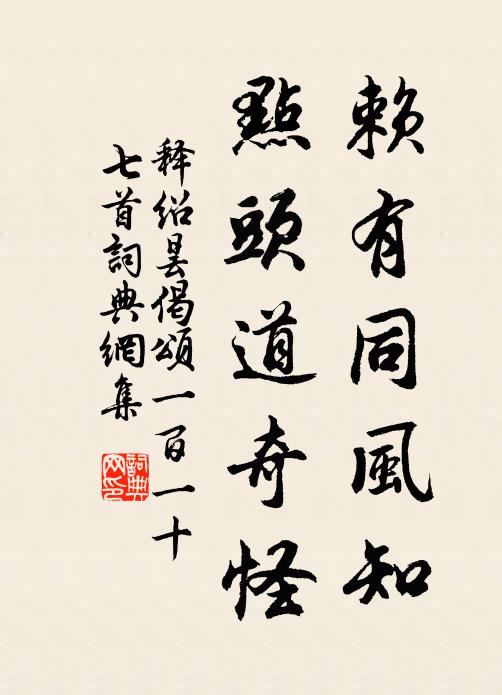 賴有同風知
點頭道奇怪
释紹曇偈頌一百一十
七首詞典網集
詞典
网印